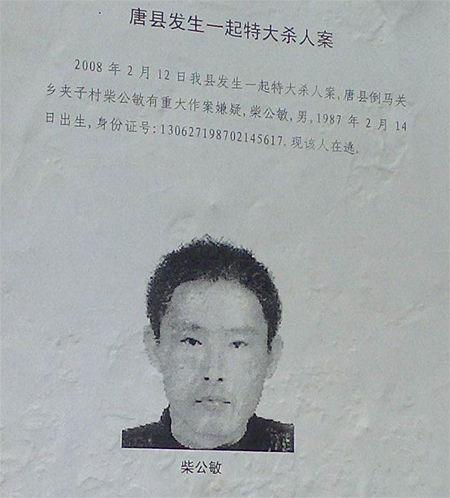 唐县发生一起特大杀人案
2008 年 2 月 12 日我县发生一起特大杀人案，唐县倒马关
乡夹子村柴公敏有重大作案嫌疑，柴公敏，男，1987 年 2 月 14
日出生，身份证号：130627198702145617. 现该人在逃.
柴公敏